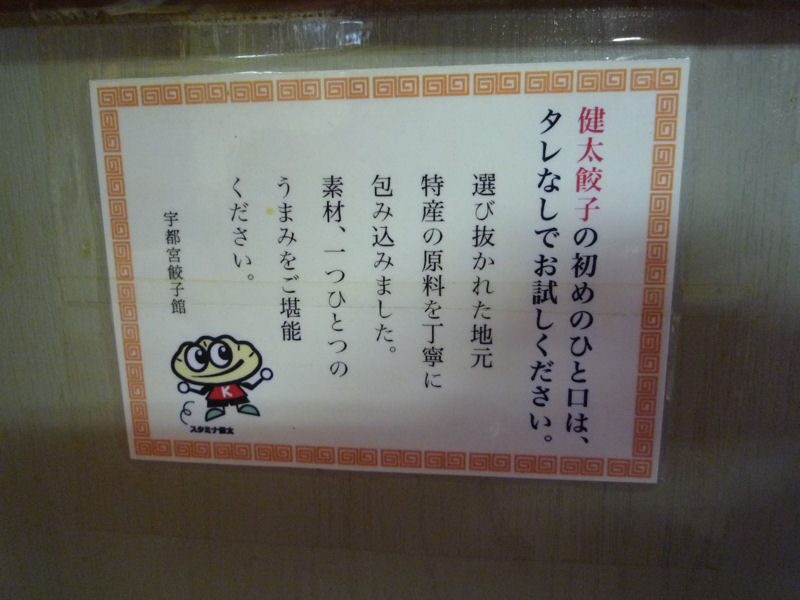 健太餃子の初めのひと口は、
タレなしでお試しください。
選び抜かれた地元
特産の原料を丁寧に
包み込みました。
素材、一つひとつの
うまみをご堪能
ください。
宇都宮餃子館
K
スタミナ健太